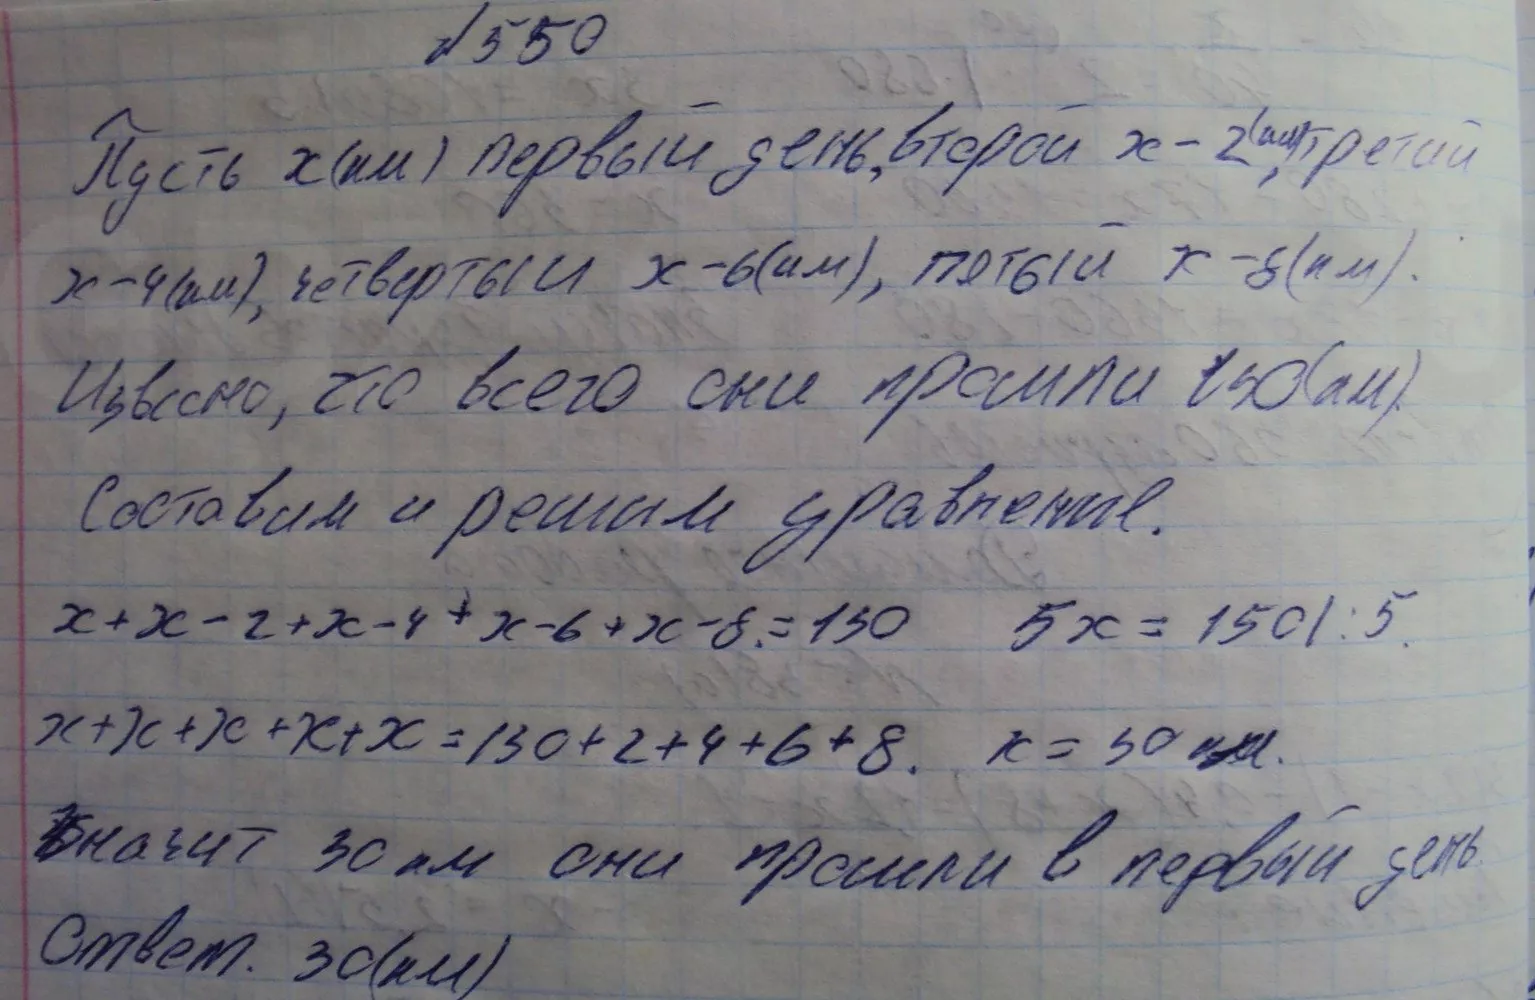 №550
Пусть x(км) первый день, второй x-2(км), третий
x-4(км), четвертый x-6(км), пятый x-8(км).
Извесно, что всего они прошли 130(км).
Составим и решим уравнение.
x+x-2+x-4+x-6+x-8.=130 5x=150|:5.
x+x+x+x+x=130+2+4+6+8. x=30 км.
Значит 30 км они прошли в первый день
Ответ. 30(км)